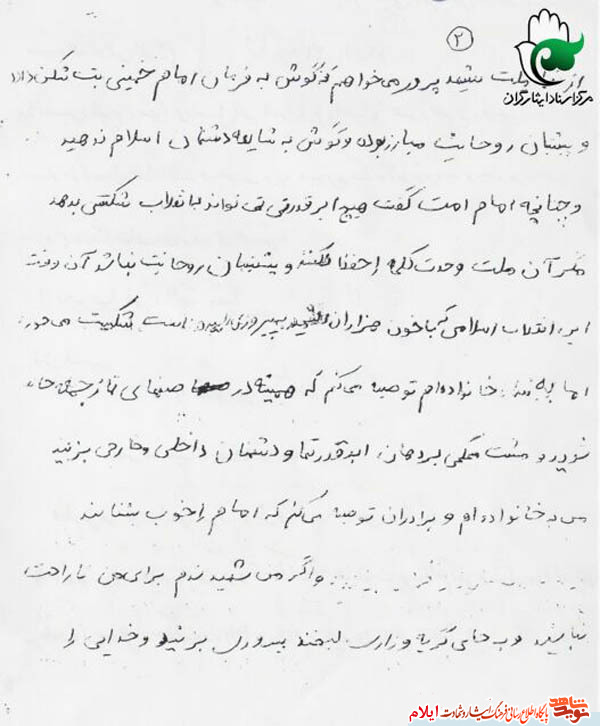 مرکز اسناد ایثارگران
۲
از ملت شهید پرور می‌خواهم که گوش به فرمان امام خمینی بت شکن داده
و پشتبان روحانیت مبارز بوده و گوش به شایعه دشمنان اسلام ندهید
و چنانچه امام امت گفت هیچ ابر قدرتی نمی تواند به انقلاب شکستی بدهد
مگر آن ملت وحدت کلمه را حفظ نکنند و پشتیبان روحانیت نباشد آن وقت
این انقلاب اسلامی که با خون هزاران شهید به پیروزی رسیده است شکست می خورد
اما به خانواده‌ام توصیه می‌کنم که همیشه در صفهای نماز جمعه حاضر
شوید و مشت محکمی بر دهان ابرقدرتها و دشمنان داخلی و خارجی بزنید
من به خانواده‌ام و برادران توصیه می‌کنم که امام را خوب بشناسند
و اگر من شهید شدم برای من ناراحت
نباشید و به جای گریه و زاری لبخند پیروزی بزنید و خدایی را
نوید شاهد پایگاه اطلاع رسانی فرهنگ ایثار و شهادت ایلام